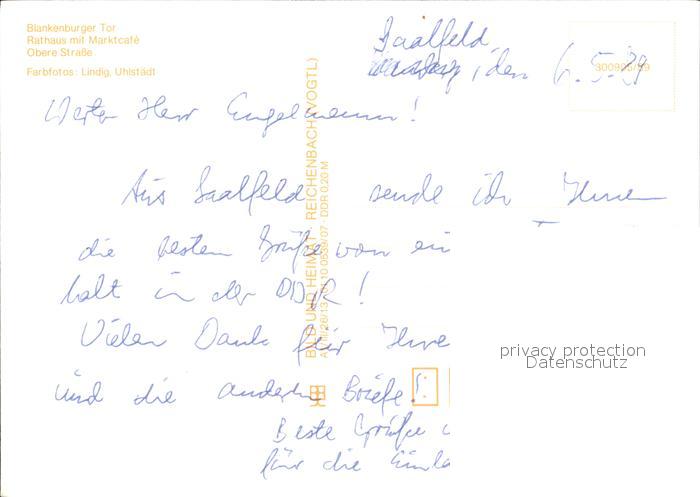 Blankenburger Tor
Rathaus mit Marktcafé
Obere Straße
Farbfotos: Lindig, Uhlstädt
Saalfeld,
, den 6.5.89
Werter Herr Engelmann!
Aus Saalfeld sende ich Ihnen
die besten Grüße von ein
halt in der DDR!
Vielen Dank für Ihre
und die anderen Briefe!
Beste Grüße
für die Einla
BILD UND HEIMAT · REICHENBACH (VOGTL)
DDR 0,20 M
privacy protection
Datenschutz